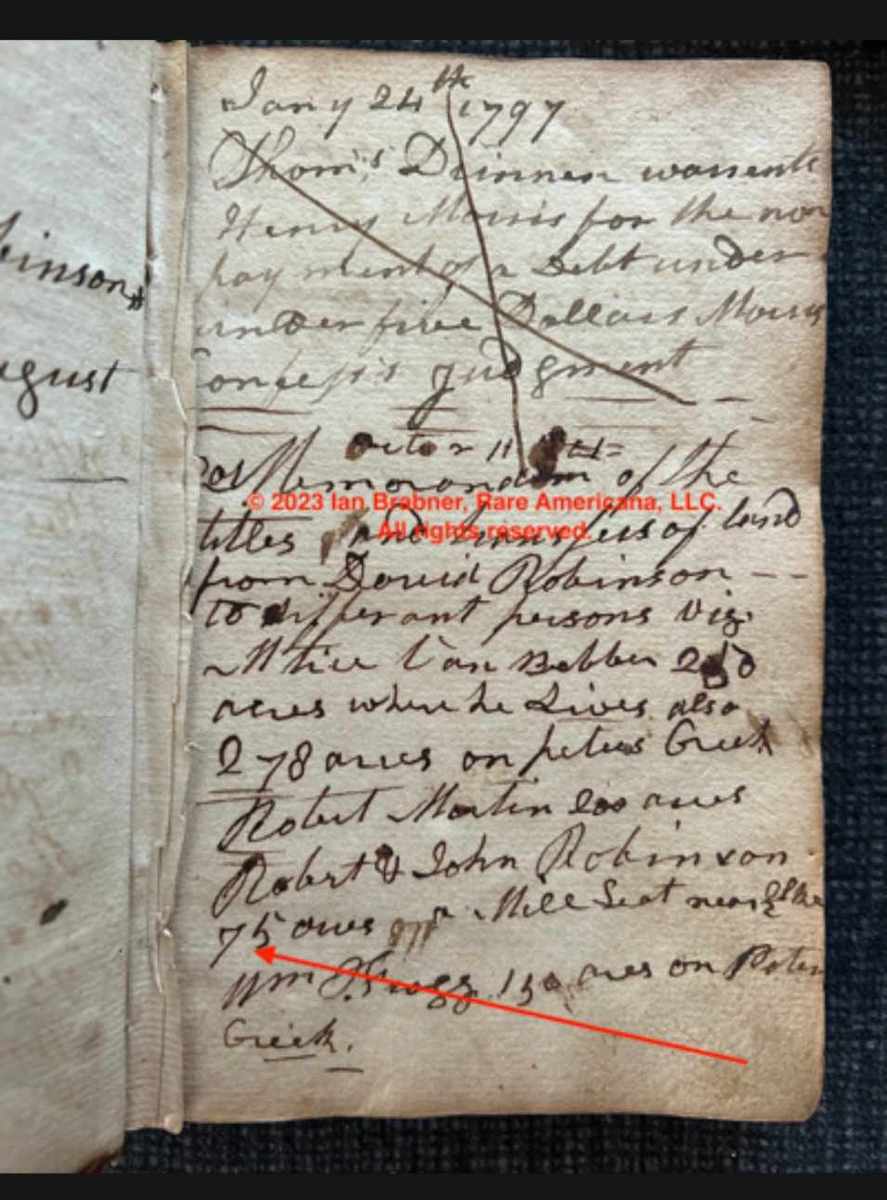 binson
ugust
Jany 24th 1797
Thom's Dinnen warrents
Henry Morris for the non
payment of a Debt under
under five Dollars Morris
Confess's judgment
11
Memorandom of the
© 2023 Ian Brabner, Rare Americana, LLC.
All rights reserved.
titles and transfers of land
from David Robinson
to differant persons viz.
Van Bebber
acres where he Lives also
278 acres on peters Creek
Robert Martin 200 acres
Robert & John Robinson
75 acres on a Mill Seat near
Wm 150 acres on Peters
Creek.